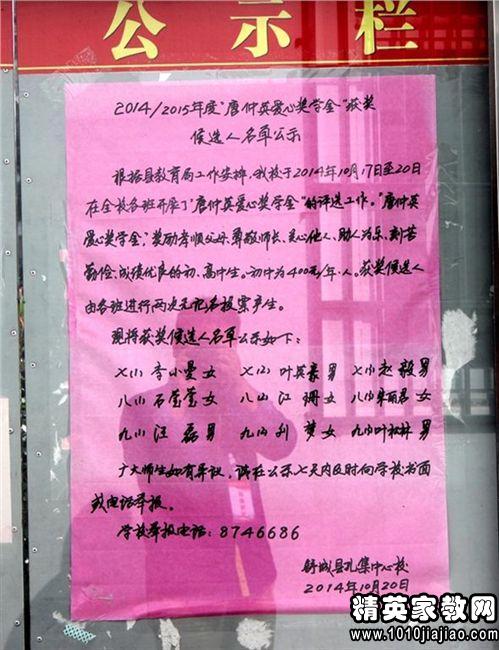 公示栏
2014/2015年度"唐仲英爱心奖学金"获奖
候选人名单公示
根据县教育局工作安排,我校于2014年10月17日至20日
在全校各班开展了"唐仲英爱心奖学金"的评选工作。"唐仲英
爱心奖学金"奖励孝顺父母、尊敬师长、关心他人、助人为乐、刻苦
勤俭、成绩优良的初、高中生。初中为400元/年.人。获奖候选人
由各班进行两次无记名投票产生。
现将获奖候选人名单公示如下:
七(1) 李小曼 女 七(2) 叶英豪 男 七(3) 赵毅 男
八(1) 石莹莹 女 八(2) 江珊 女 八(3) 朱丽君 女
九(1) 汪磊 男 九(2) 刘梦 女 九(3) 叶松林 男
广大师生如有异议,请在公示七天内及时向学校书面
或电话举报。
学校举报电话:8746686
舒城县孔集中心校
2014年10月20日
精英家教网
www.1010jiajiao.com